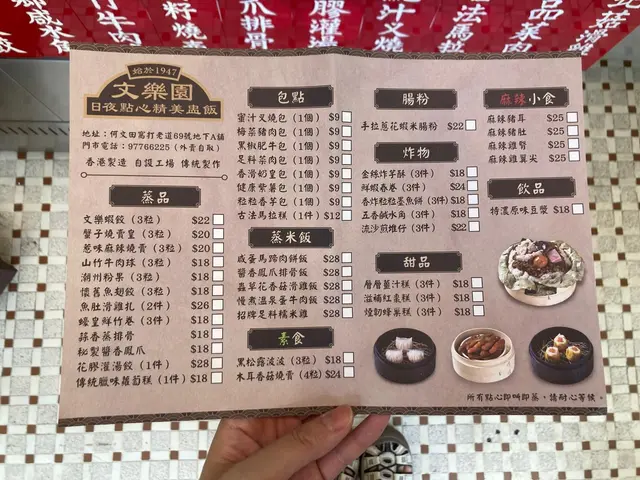 始於1947
文樂園
日夜點心精美盅飯
地址：何文田窩打老道69號地下A舖
門市電話：97766225（外賣自取）
香港製造 自設工場 傳統製作
蒸品
文樂蝦餃（3粒） $22
蟹子燒賣皇（3粒） $20
惹味麻辣燒賣（3粒） $20
山竹牛肉球（3粒） $18
潮州粉果（3粒） $18
懷舊魚翅餃（3粒） $18
魚肚滑雞扎（2件） $26
蠔皇鮮竹卷（3件） $18
蒜香蒸排骨 $18
秘製醬香鳳爪 $18
花膠灌湯餃（1件） $28
傳統臘味蘿蔔糕（1件） $18
包點
蜜汁叉燒包（1個） $9
梅菜豬肉包（1個） $9
黑椒肥牛包（1個） $9
足料菜肉包（1個） $9
香滑奶皇包（1個） $9
健康紫薯包（1個） $9
粒粒香芋包（1個） $9
古法馬拉糕（1件） $12
蒸米飯
咸蛋馬蹄肉餅飯 $28
醬香鳳爪排骨飯 $28
蟲草花香菇滑雞飯 $28
慢煮溫泉蛋牛肉飯 $28
招牌足料糯米雞 $28
素食
黑松露波波（3粒） $18
木耳香菇燒賣（4粒） $24
腸粉
手拉蔥花蝦米腸粉 $22
炸物
金絲炸芋酥（3件） $18
鮮蝦春卷（3件） $24
香炸粒粒墨魚餅（3件） $18
五香鹹水角（3件） $18
流沙煎堆仔（3件） $22
甜品
層層薑汁糕（3件） $18
滋補紅棗糕（3件） $18
煙韌蜂巢糕（3件） $18
麻辣小食
麻辣豬耳 $25
麻辣豬肚 $25
麻辣雞腎 $25
麻辣雞翼尖 $25
飲品
特濃原味豆漿 $18
所有點心即叫即蒸，請耐心等候。